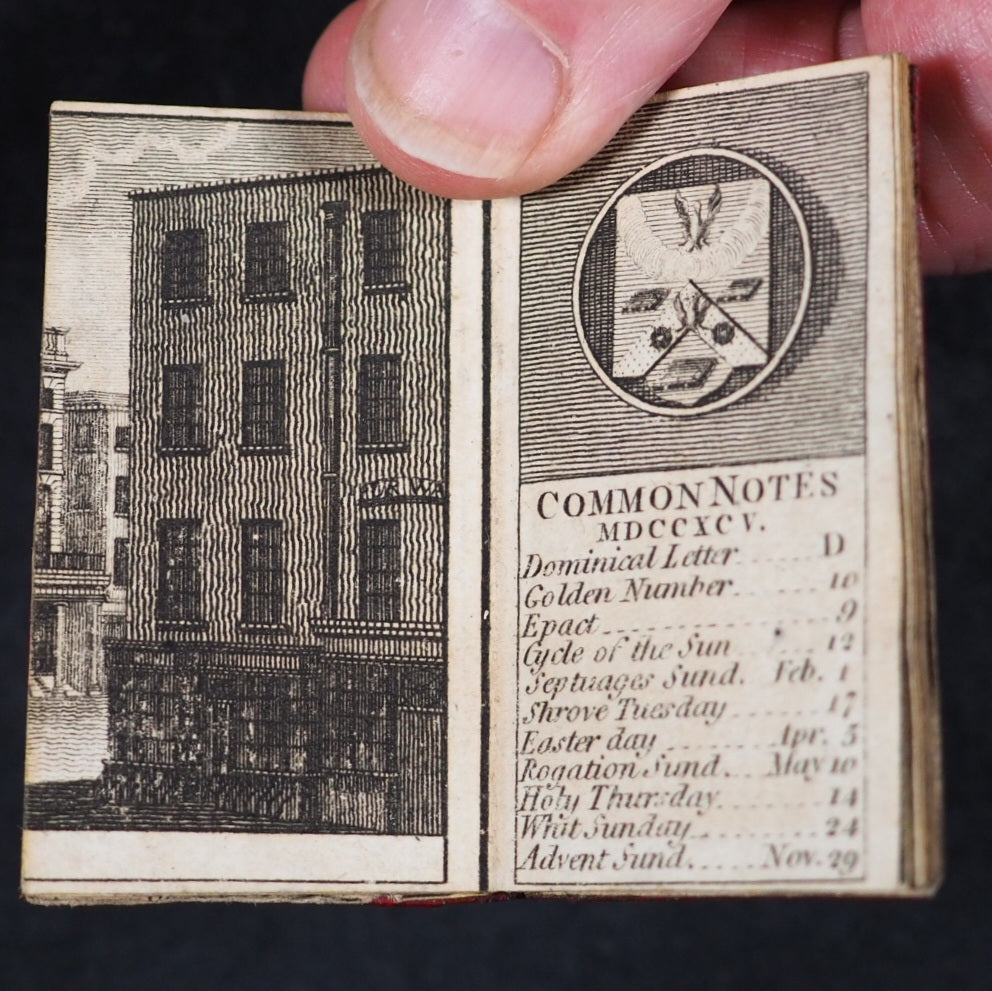 COMMON NOTES
MDCCXCV.
Dominical Letter D
Golden Number 10
Epact 9
Cycle of the Sun 12
Septuages Sund. Feb. 1
Shrove Tuesday 17
Easter day Apr. 5
Rogation Sund. May 10
Holy Thursday 14
Whit Sunday 24
Advent Sund. Nov. 29